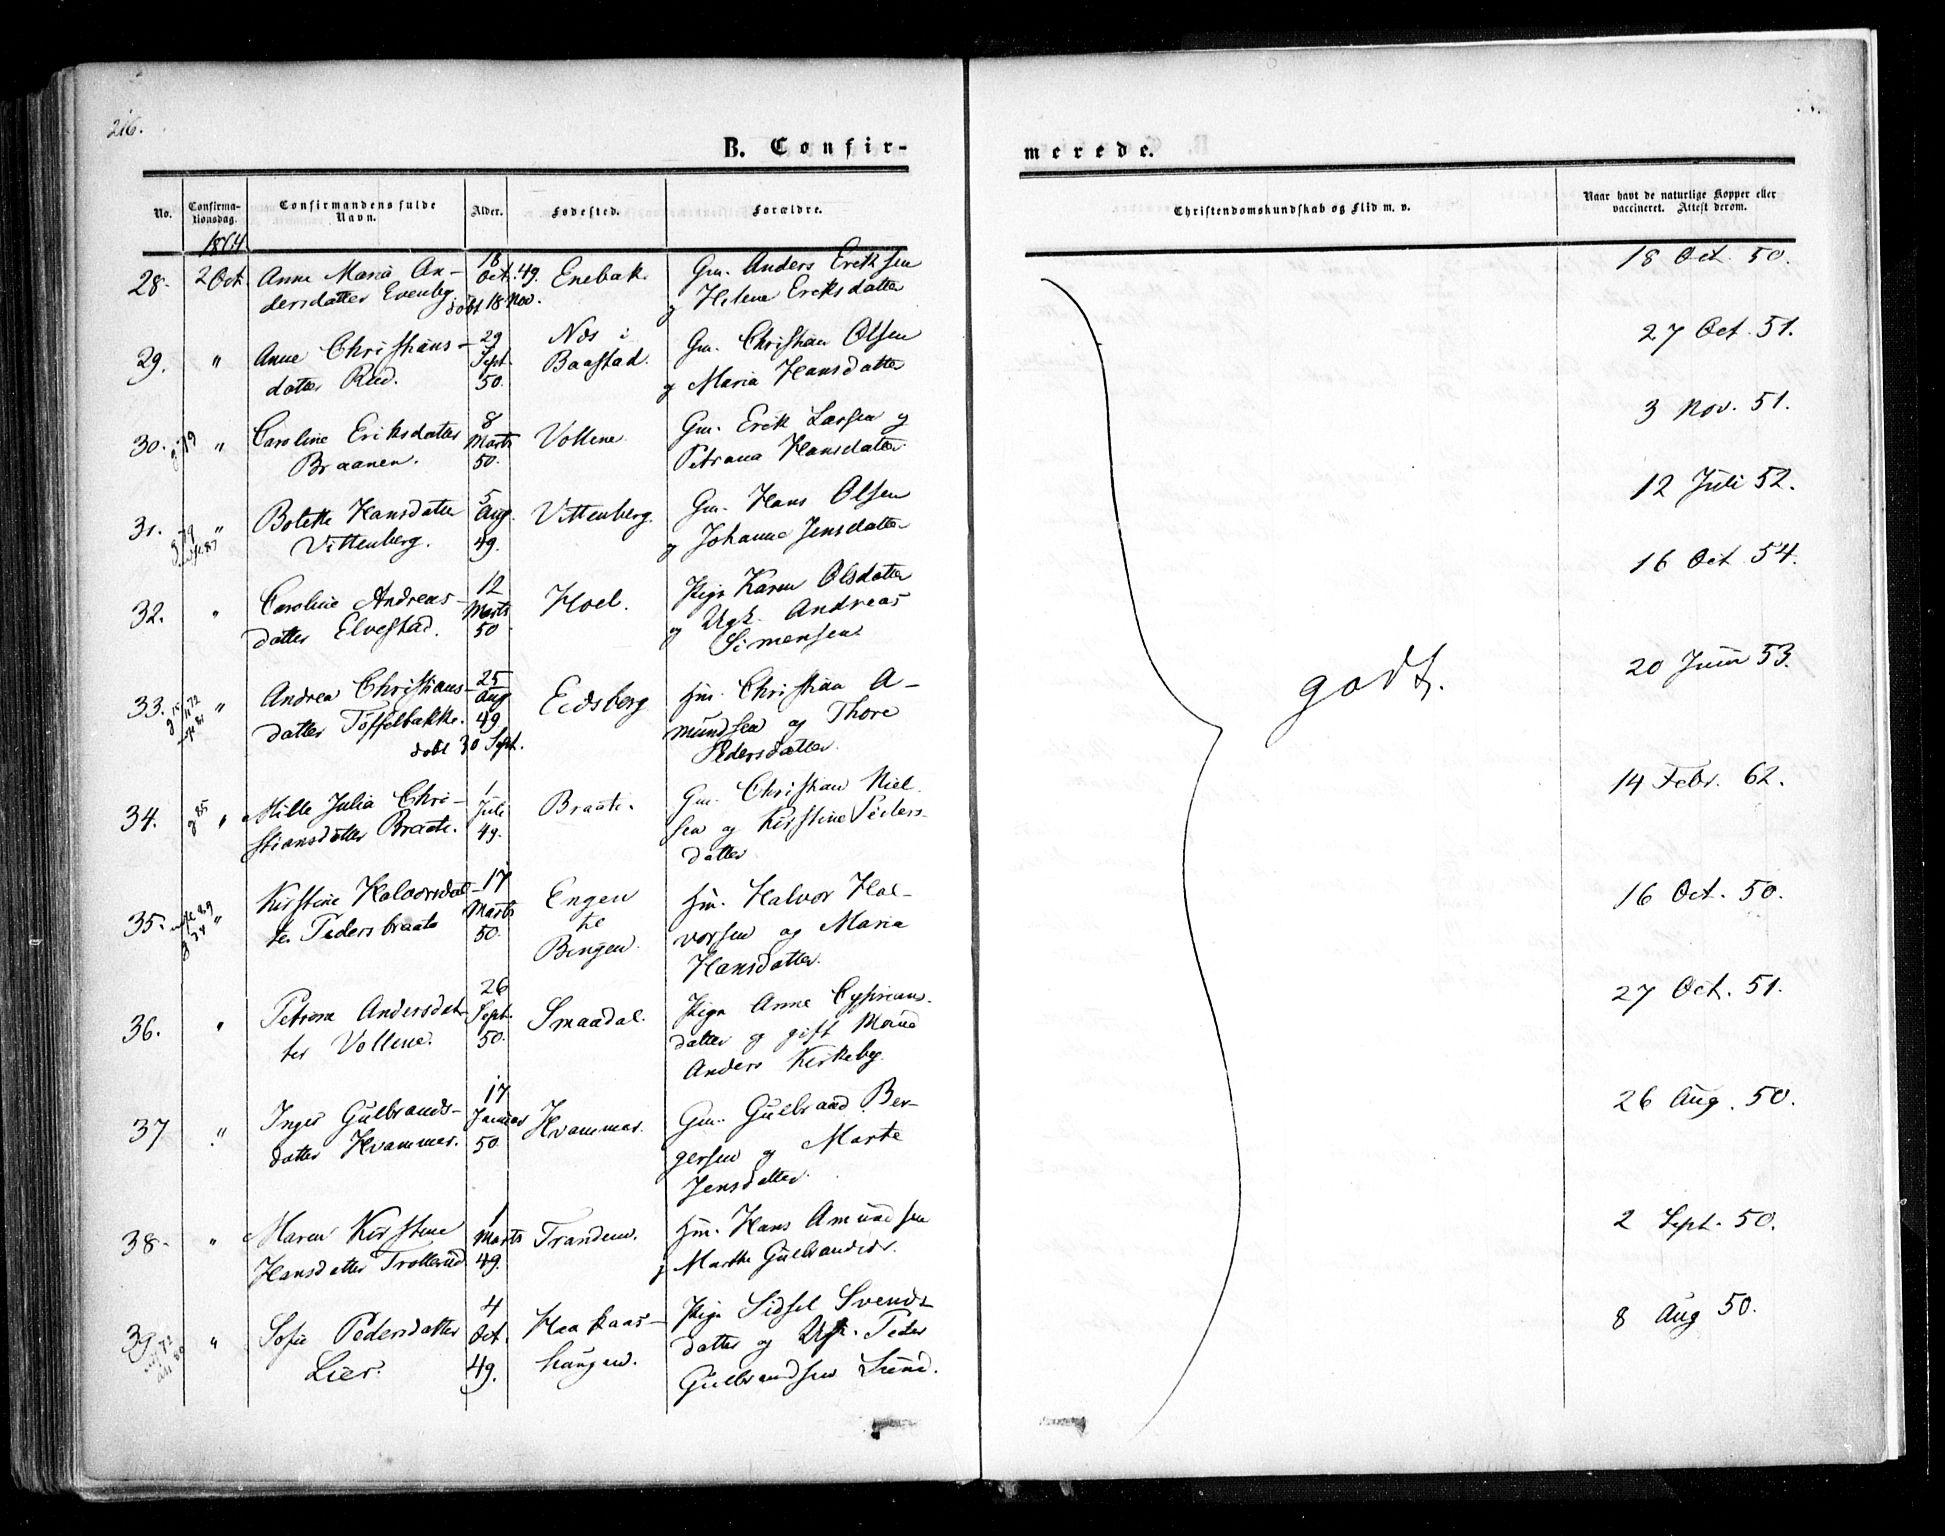 216.
B. Confir-
merede.
No.
Confirma-
tionsdag.
Confirmandens fulde
Navn.
Alder.
Fødested.
Forældre.
Christendomskundskab og Flid m. v.
Naar havt de naturlige Kopper eller
vaccineret. Attest derom.
1864
28. 2 Oct. Anne Maria An- 18 Oct. 49. Enebak. Gm. Anders Eriksen 18 Oct. 50.
dersdatter Evenby døbt 18 Nov. og Helene Eriksdatter
29. " Anne Christians- 29 Næs i Gm. Christian Olsen 27 Oct. 51.
datter Rud. Sept. 50. Baastad. og Maria Hansdatter
30. g 79 " Caroline Eriksdatter 8 Marts Vollene. Gm. Erik Larsen og 3 Nov. 51.
Braanen. 50. Petrana Hansdatter
31. g 79 " Bolette Hansdatter 5 Aug. Vittenberg. Gm. Hans Olsen 12 Juli 52.
Vittenberg. 49. og Johanne Jensdatter
32. " Caroline Andreas- 12 Marts Hoel. Pige Karen Olsdatter 16 Oct 54.
datter Elvestad. 50 og Ugk. Andreas
Simensen
33. " Andrea Christians- 25 Aug Eidsberg Hm. Christian A- 20 Juni 53.
datter Tøffelbakke. 49 mundsen og Thore
døbt 30 Sept. Pedersdatter
34. g 85 " Mille Julia Chri- 1 Juli Braate. Gm. Christian Niel- 14 Febr. 62.
stiansdatter Braate. 49. sen og Kirstine Peders-
datter
35. " Kirstine Halvorsdat- 17 Marts Engen Hm. Halvor Hal- 16 Oct. 50.
ter Pedersbraate 50. te vorsen og Maria
Bingen. Hansdatter.
36. " Petrone Andersdat- 26 Sept. Smaadal. Pige Anne Cyprians- 27 Oct. 51.
ter Vollene. 50. datter og gift Mand
Anders Kirkeby.
37 " Inger Gulbrands- 17 Januar Hvammer. Gm. Gulbrand Ber- 26 Aug. 50.
datter Hvammer. 50 gersen og Marte
Jensdatter
38. " Maren Kirstine 1 Marts Tranden. Hm. Hans Amundsen 2 Sept. 50.
Hansdatter Trollerud 49. og Marthe Gulbrandsdr.
39. " Sofie Pedersdatter 4 Oct. Haakaas- Pige Sidsel Svends- 8 Aug 50.
Lier. 49. haugen. datter og Ugk. Peder
Gulbrandsen Sund.
godt.